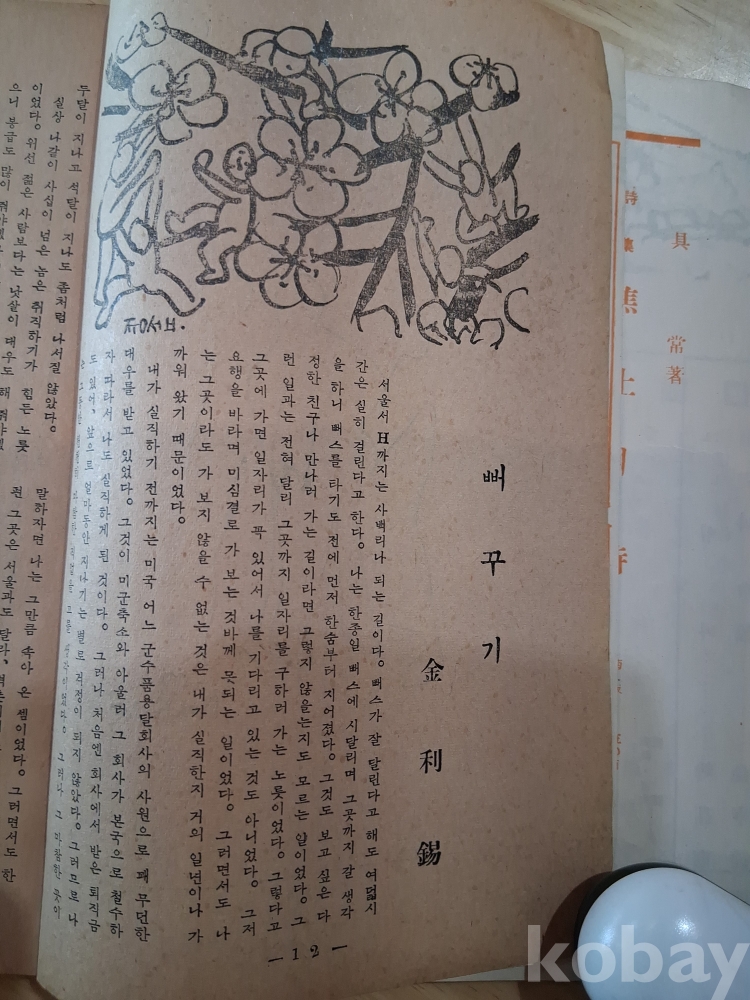 뻐꾸기
金利錫
서울서 H까지는 사백리나 되는 길이다. 뻐스가 잘 달린다고 해도 여덟시
간은 실히 걸린다고 한다. 나는 한종일 뻐스에 시달리며 그곳까지 갈 생각
을 하니 뻐스를 타기도 전에 먼저 한숨부터 지어졌다. 그것도 보고 싶은 다
정한 친구나 만나러 가는 길이라면 그렇지 않을는지도 모르는 일이었다. 그
런 일과는 전혀 달리 그곳까지 일자리를 구하러 가는 노릇이었다. 그렇다고
그곳에 가면 일자리가 꼭 있어서 나를 기다리고 있는 것도 아니었다. 그저
요행을 바라며 미심결로 가 보는 것바께 못되는 일이었다. 그러면서도 나
는 그곳이라도 가 보지 않을 수 없는 것은 내가 실직한지 거의 일년이나 가
까워 왔기 때문이었다.
내가 실직하기 전까지는 미국 어느 군수품용달회사의 사원으로 꽤 무던한
대우를 받고 있었다. 그것이 미군축소와 아울러 그 회사가 본국으로 철수하
자 따라서 나도 실직하게 된 것이다. 그러나 처음엔 회사에서 받은 퇴직금
도 있어, 앞으로 얼마동안 지나기는 별로 걱정이 되지 않았다. 그러므로 나
그러나 그 마땅한 곳이
— 12 —
두달이 지나고 석달이 지나도 좀처럼 나서질 않았다.
실상 나같이 사십이 넘은 놈은 취직하기가 힘든 노릇
이었다. 위선 젊은 사람보다는 낫살이 대우도 해 줘야겠
으니 봉급도 많이 줘야겠
말하자면 나는 그만큼 속아 온 셈이었다. 그러면서도 한
그곳은 서울과도 달라,
具常著
詩集
焦土의詩
kobay